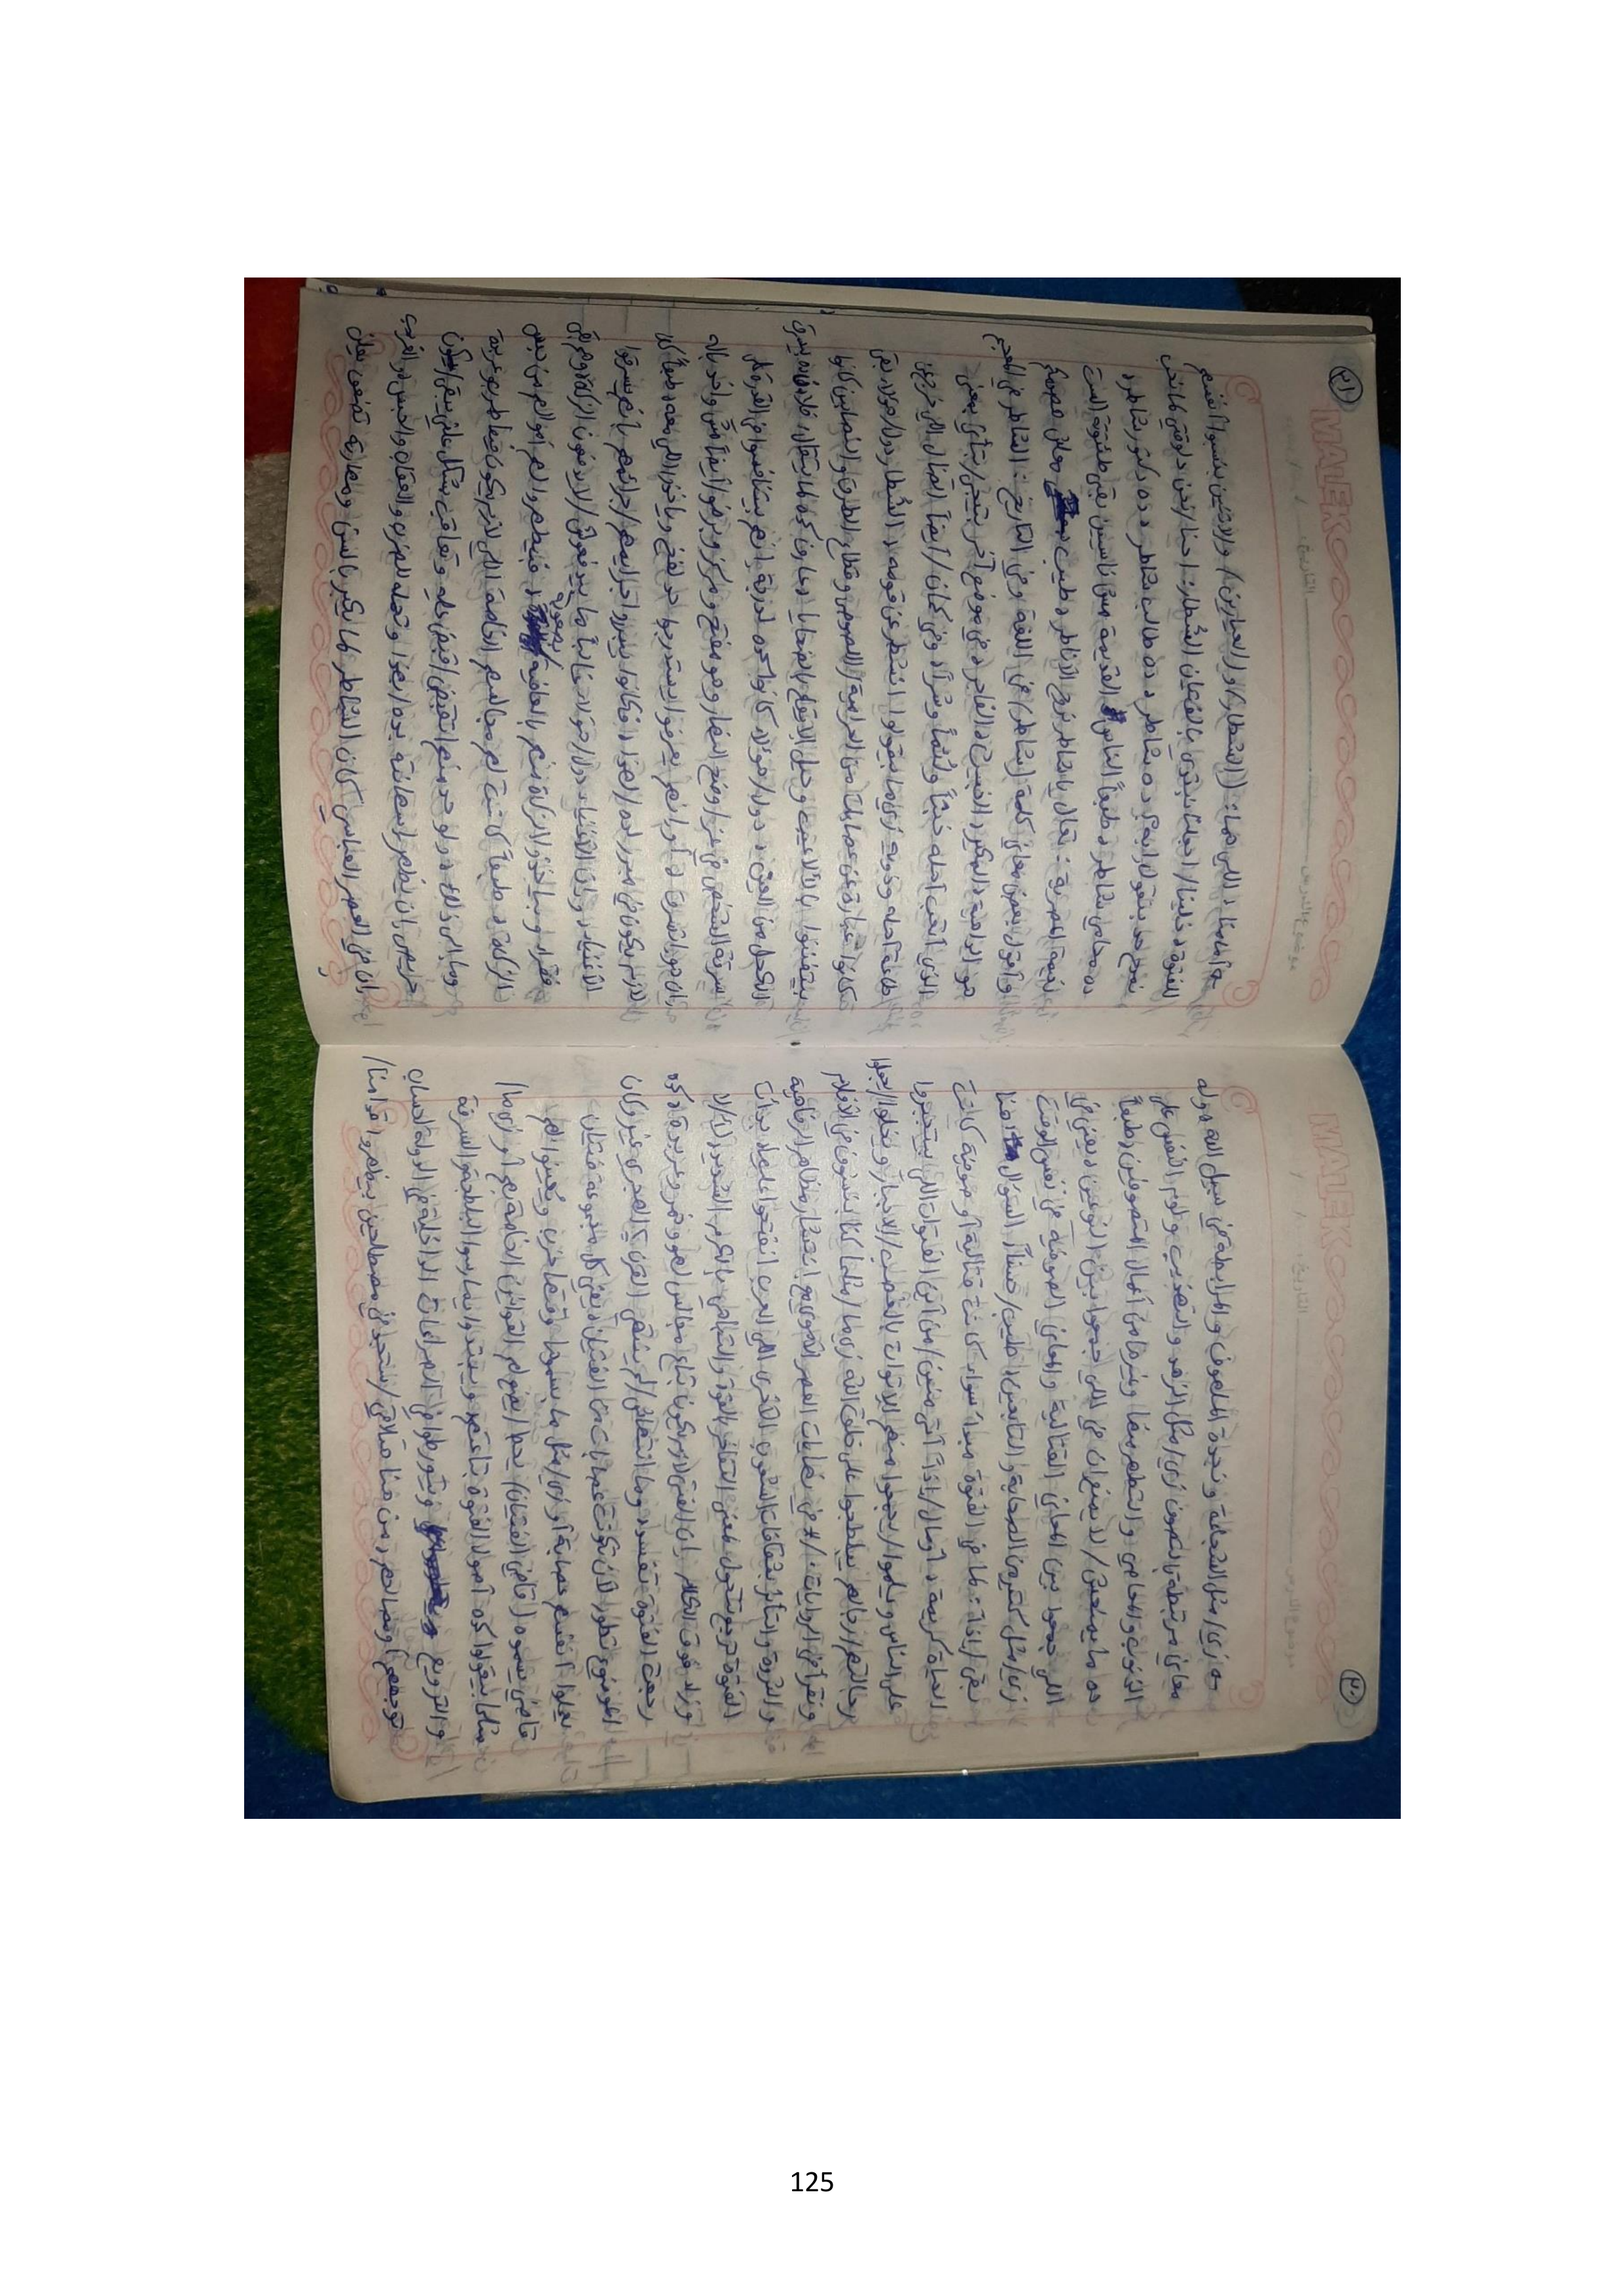 MALEK
موضوع الدرس التاريخ / /
٢٠
زي / مثل الشجاعة و نجدة الملهوف و المرابطة في سبيل الله و دوله
معاني مرتبطة بالتصوف زي / مثل الزهد و التهذيب و لوم النفس على
الذنوب و المعاصي و التطهر منها و غيرها من أعمال المتصوفين و طبعاً
ده ما يمنعش / لا يمنع إن في اللي جمعوا بين النوعين يعني في
اللي جمعوا بين المعاني القتالية و المعاني الصوفية في نفس الوقت
زي / مثل كتير من الصحابة و التابعين، طيب / حسناً، السؤال هنا
بقى / إذاً: لما هي الفتوة مبدأ سواء كانت قتالية أو صوفية كانت
الحياة كريمة، أومال / إذاً أتى منين / من أين الفتوات اللي بيتجبروا
على الناس و يلموا / يجمعوا منهم الإتاوات بالغصب / الإجبار و يخلوا / يجعلوا
رجالتهم / رجالهم يبلطجوا على خلق الله زي ما / مثلما كنا بنشوف في الأفلام
و نقرأ في الروايات؟ / في نهايات العصر الأموي مع انتشار مظاهر الرفاهية
و الثروة و التأثر بثقافات الشعوب الأخرى اللي العرب انفتحوا عليها، بدأت
الفتوة ترجع تتحول لمعنى التفاخر بالقوة و التباهي بالكرم الشديد، لأ / لا
و زد فوق الكلام إن الفتى لازم يكون بتاع مجالس لهو و خمر و عربدة، و كده
رجعت الفتوة تفسد و ما انتهاش / لم ينتهي القرن ٢ الهجري غير و كان
الموضوع تطور لأن تكونت عصابات من الفتيان، يعني كل مجموعة فتيان
يعملوا لنفسهم عصابة أو زي / مثل ما بنسميها وقتها حزب و يعينوا لهم
قاضي يسموه (قاضي الفتيان) يحط / يضع لهم القوانين الخاصة بهم أو زي ما /
مثلما بيقولوا كده أصول الفتوة بتاعتهم و يبتدوا يمارسوا البلطجة و السرقة
و الترويع و يتورطوا في الصراعات الداخلية في الدولة لحساب
توجههم أو مصالحهم، من هنا هتلاقي / ستجد في مصطلحين بيظهروا قدامنا /
MALEK
موضوع الدرس التاريخ / /
٢١
أمامنا، اللي هما: ((الشطار)) و ((العيارين)) و الاتنين بنسبوا أنفسهم
للفتوة، خلينا / اجعلنا نبتدي بالفتيان الشطار: احنا / نحن دلوقتي لما نحب
نمدح حد بنقول إيه؟ ده شاطر، ده طالب شاطر، ده دكتور شاطر،
ده محامي شاطر، طبعاً الناس القديمة مش ناسيين بقى طشقونة الست
نعيمة المصرية: تعالى يا شاطر نروح القناطر، طيب معاني هممكم
و أقول بعض معاني كلمة (شاطر) في اللغة و في التاريخ: الشاطر في المعجم
هو الداهية و المكير و الخبيث و الفاجر، في موضع آخر بتيجي / بتأتي بمعنى
الذي أتعب أهله خبثاً و لؤماً و شراً، و في كمان / أيضاً القتال اللي خرج عن
طاعة أهله و ذويه زي ما بيقولوا انشطر عن قومه، الشطار دول / هؤلاء بقى
كانوا عبارة عن عصابات من الحرامية / اللصوص و قطاع الطرق و النصابين كانوا
بيتفننوا بالألاعيب و حيل الإيقاع بالضحايا، عارف كده لما يتقال: فلان ده يسرق
الكحل من العين، دول / هؤلاء كانوا كده لدرجة إنهم بيتنافسوا في القدرة على
سرقة الشخص في عز / وضح النهار و هو مفتح و مركز و برضو / أيضاً مش واخد باله
إن هو اتسرق، أو إنهم يعرفوا يستدرجوا حد لفخ و ياخدوا اللي معه، طبعاً كان
لازم يكون في مبرر لده / لهذا، فكانوا بيبرروا جرايمهم / جرائمهم بأنهم بيسرقوا
الأغنياء، و إن الأغنياء دول / هؤلاء غالباً ما بيدفعوش / لا يدفعون الزكاة و هم بقى
فقرا، و بياخدوا الزكاة منهم بالعافية / بصعوبة، فبيطهروا لهم أموالهم من دنس
الزكاة، طبعاً كانت لهم مجالسهم الخاصة اللي لازم يكون فيها طرب و عربدة
و ما إلى ذلك، و لو حد منهم اتقفش / اتقبض عليه و تعاقب بشكل علني يبقى / يكون
حريص إن يظهر استهانته بده / بهذا و تحمله للضرب و العقاب و الحبس، و الغريب
إن في العصر العباسي كان الشاطر لما يكبر بالسن و مهارته تضعف يعلن